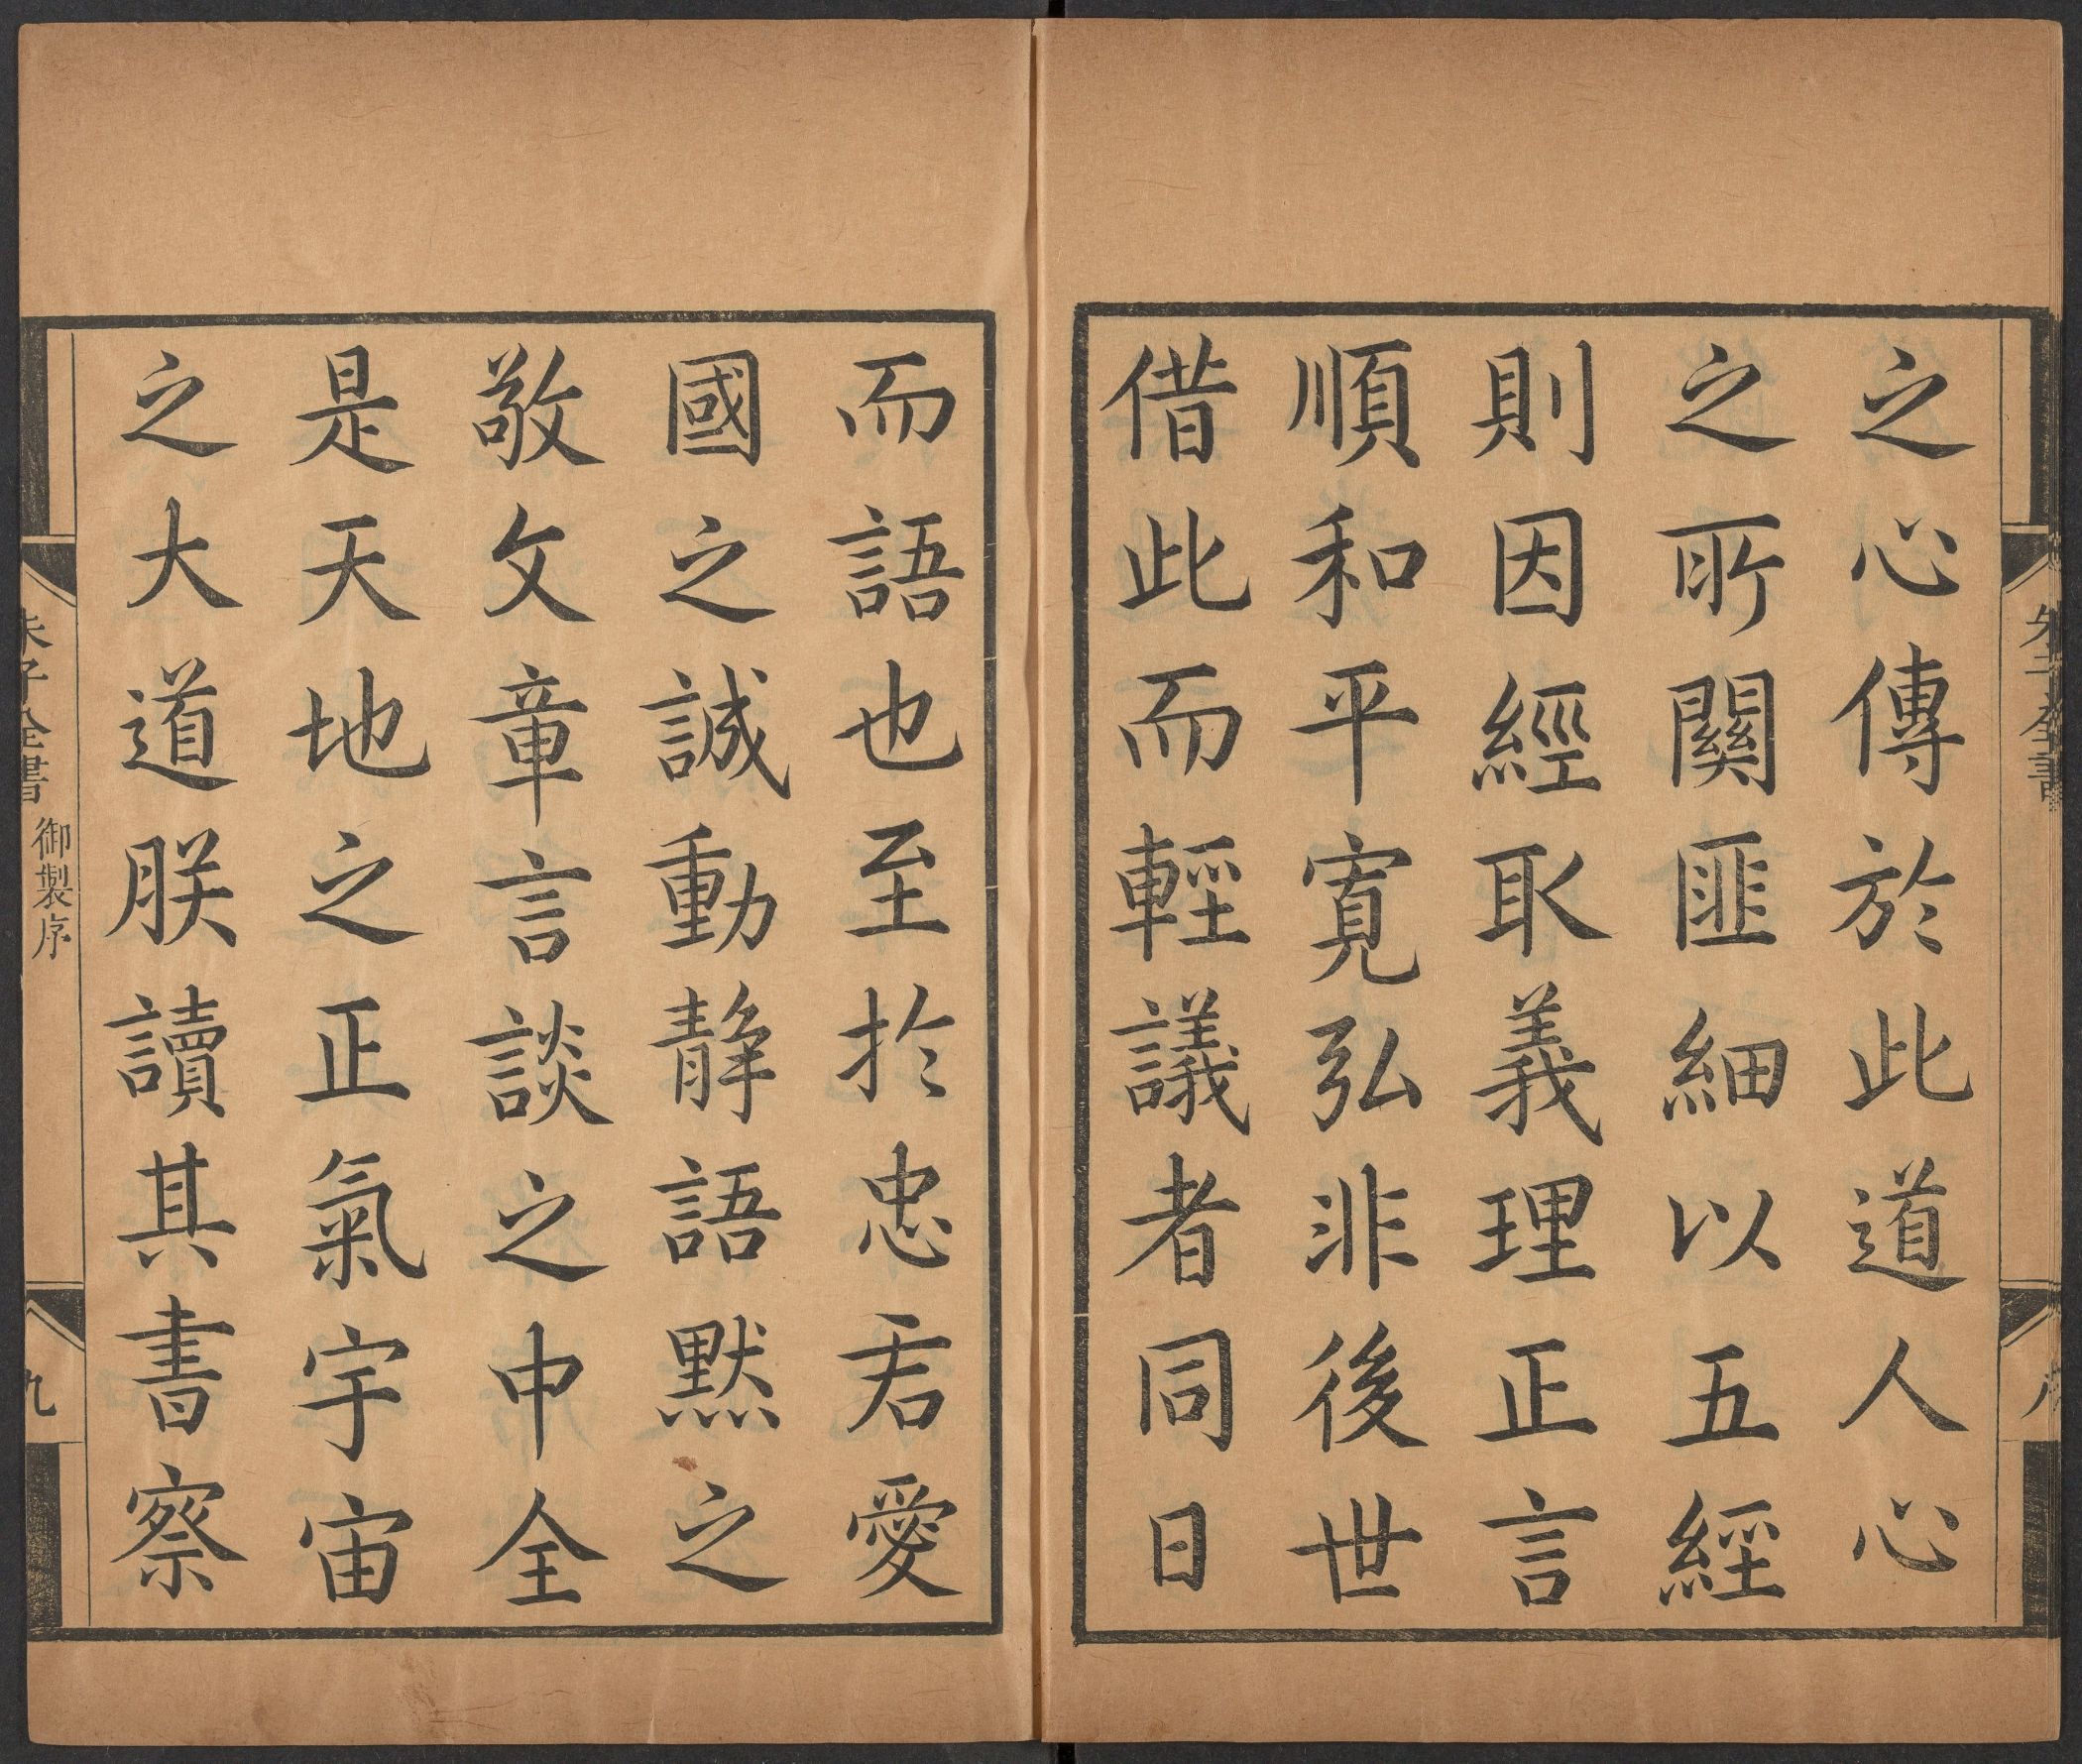 之心傳於此道人心
之所關匪細以五經
則因經取義理正言
順和平寬弘非後世
借此而輕議者同日
而語也至於忠君愛
國之誠動静語默之
敬文章言談之中全
是天地之正氣宇宙
之大道朕讀其書察
朱子全書
八
朱子全書
御製序
九